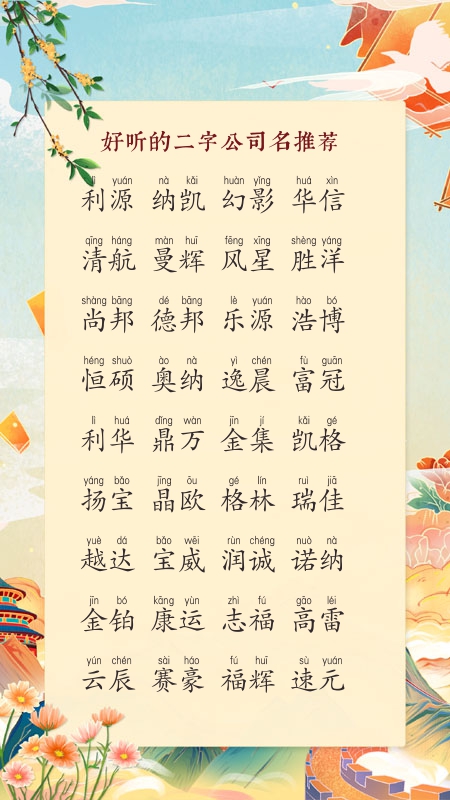 好听的二字公司名推荐
lì yuán nà kǎi huàn yǐng huá xìn
利源 纳凯 幻影 华信
qīng háng màn huī fēng xīng shèng yáng
清航 曼辉 风星 胜洋
shàng bāng dé bāng lè yuán hào bó
尚邦 德邦 乐源 浩博
héng shuò ào nà yì chén fù guān
恒硕 奥纳 逸晨 富冠
lì huá dǐng wàn jīn jí kǎi gé
利华 鼎万 金集 凯格
yáng bǎo jīng ōu gé lín ruì jiā
扬宝 晶欧 格林 瑞佳
yuè dá bǎo wēi rùn chéng nuò nà
越达 宝威 润诚 诺纳
jīn bó kāng yùn zhì fú gāo léi
金铂 康运 志福 高雷
yún chén sài háo fú huī sù yuán
云辰 赛豪 福辉 速元